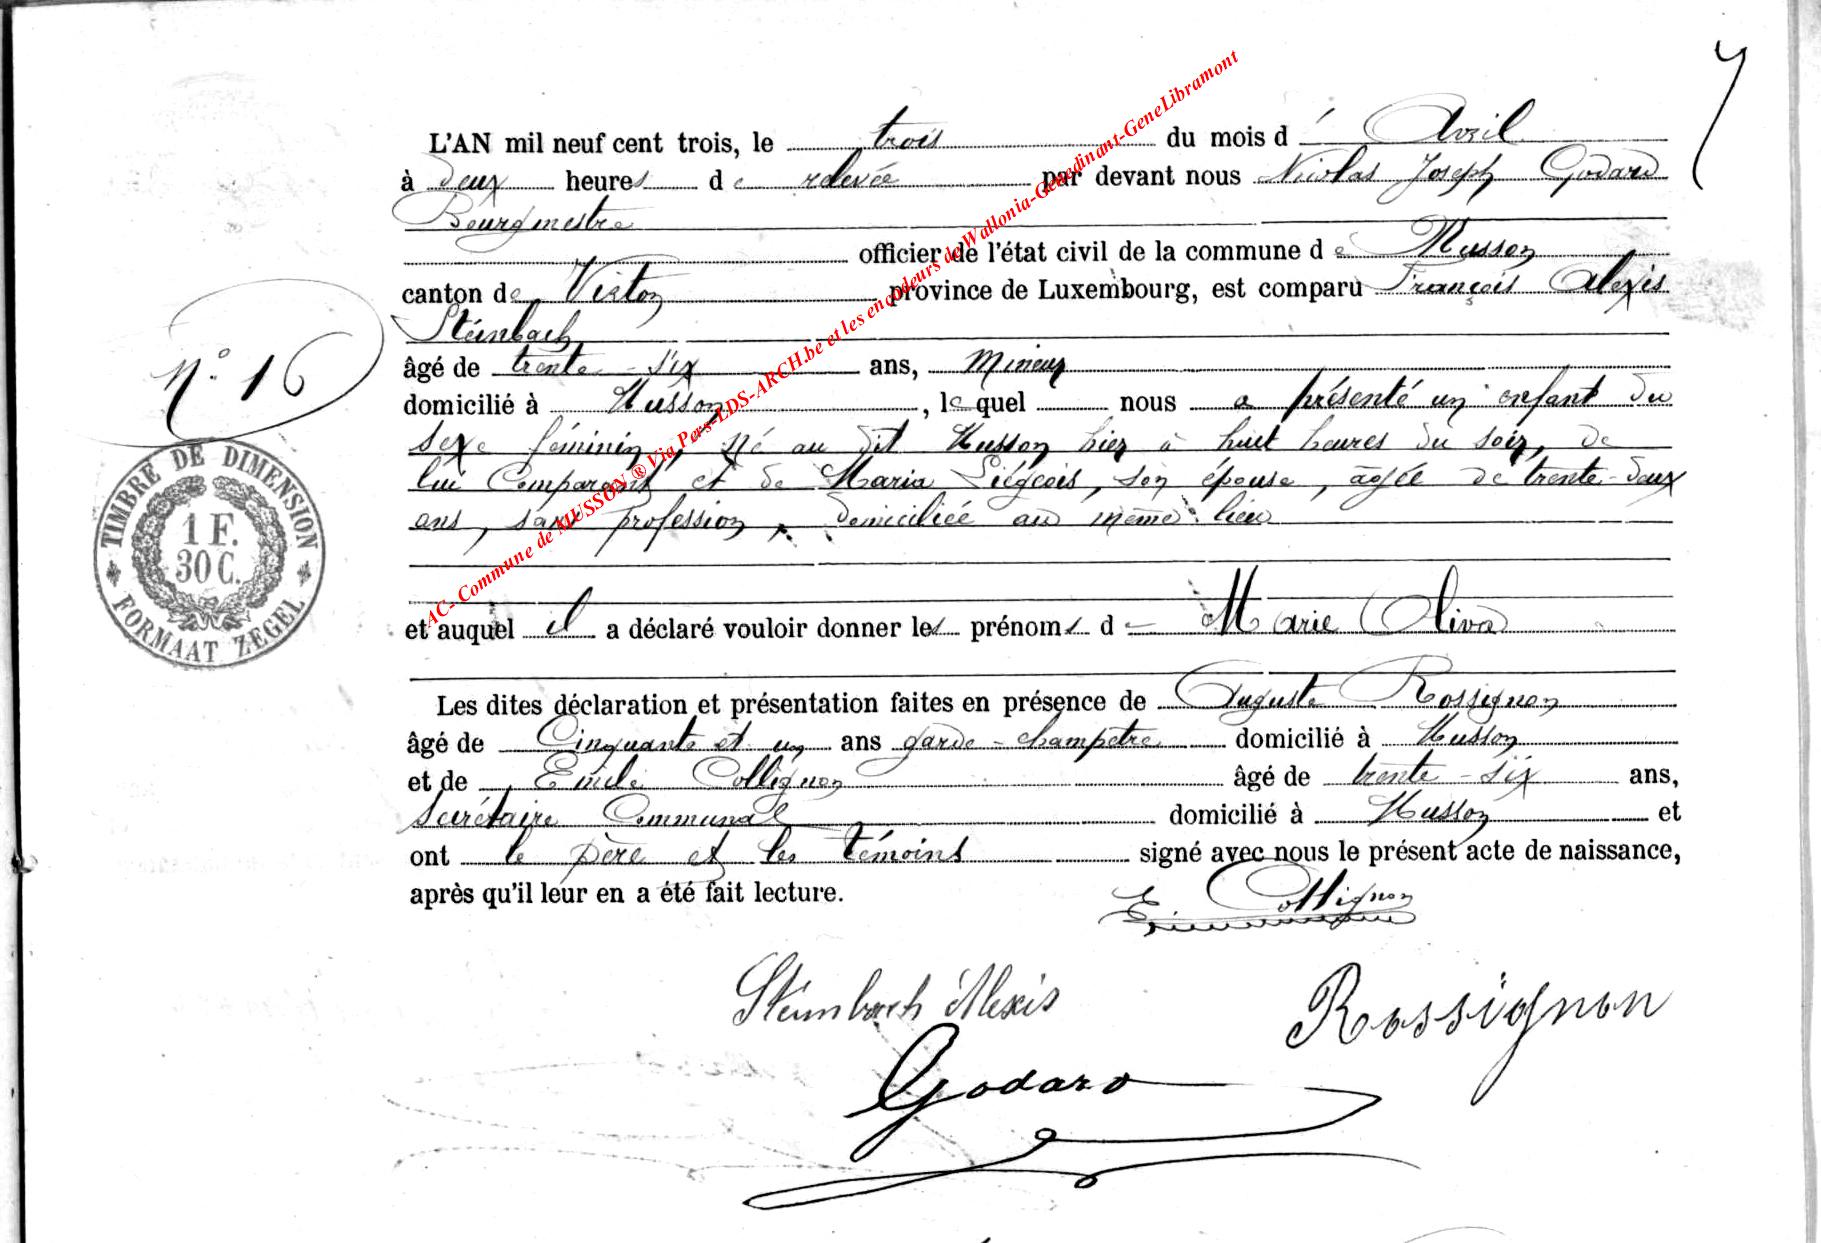 7
L'AN mil neuf cent trois, le trois du mois d'Avril
à deux heures de relevée par devant nous Nicolas Joseph Godard
Bourgmestre
officier de l'état civil de la commune de Musson
canton de Virton province de Luxembourg, est comparu François Alexis
Steinbach
âgé de trente-six ans, mineur
domicilié à Musson, lequel nous a présenté un enfant du
sexe féminin, né au dit Musson hier à huit heures du soir, de
lui Comparant et de Maria Liégeois, son épouse, âgée de trente-deux
ans, sans profession, domiciliée au même lieu
et auquel il a déclaré vouloir donner les prénoms de Marie Oliva
Les dites déclaration et présentation faites en présence de Auguste Rossignon
âgé de Cinquante et un ans garde-champêtre domicilié à Musson
et de Emile Collignon âgé de trente-six ans,
Secrétaire Communal domicilié à Musson et
ont le père et les témoins signé avec nous le présent acte de naissance,
après qu'il leur en a été fait lecture.
E. Collignon
Steinbach Alexis
Rossignon
Godard
N° 16
TIMBRE DE DIMENSION
1 F.
30 C.
FORMAAT ZEGEL
AC- Commune de MUSSON ® Via Pers-LDS-ARCH.be et les encodeurs de Wallonia-Genedinant-GeneLibramont